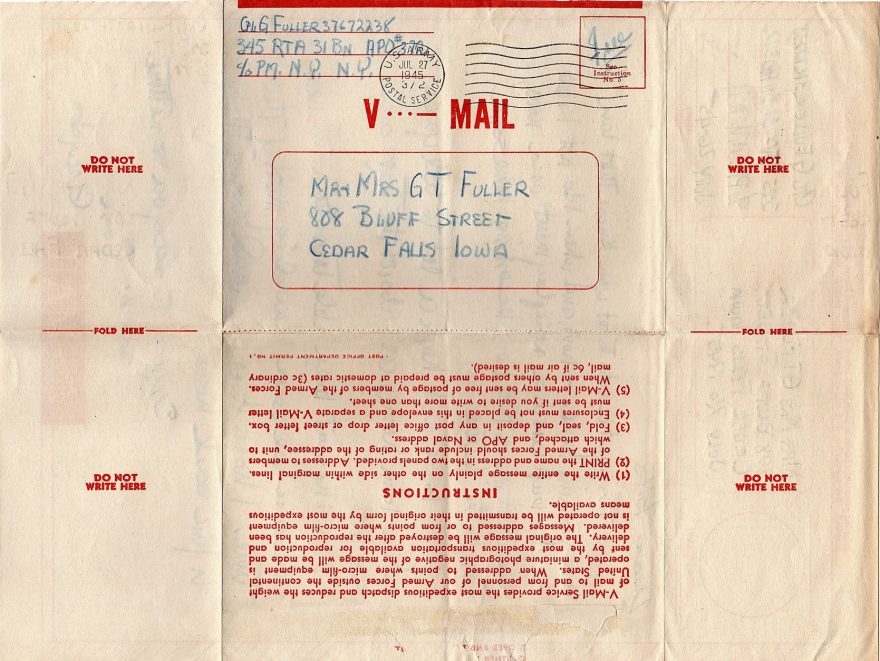 Cpl G Fuller 37672238
345 RTA 31 Bn APO # 372
c/o PM. N.Y. N.Y.
U.S. ARMY
JUL 27
1945
372
POSTAL SERVICE
Free
See
Instruction
No. 5
V ···— MAIL
DO NOT
WRITE HERE
DO NOT
WRITE HERE
Mr + Mrs G T Fuller
808 Bluff Street
Cedar Falls Iowa
FOLD HERE
FOLD HERE
DO NOT
WRITE HERE
DO NOT
WRITE HERE
V-Mail Service provides the most expeditious dispatch and reduces the weight
of mail to and from personnel of our Armed Forces outside the continental
United States. When addressed to points where micro-film equipment is
operated, a miniature photographic negative of the message will be made and
sent by the most expeditious transportation available for reproduction and
delivery. The original message will be destroyed after the reproduction has been
delivered. Messages addressed to or from points where micro-film equipment
is not operated will be transmitted in their original form by the most expeditious
means available.
INSTRUCTIONS
(1) Write the entire message plainly on the other side within marginal lines.
(2) PRINT the name and address in the two panels provided. Addresses to members
of the Armed Forces should include rank or rating of the addressee, unit to
which attached, and APO or Naval address.
(3) Fold, seal, and deposit in any post office letter drop or street letter box.
(4) Enclosures must not be placed in this envelope and a separate V-Mail letter
must be sent if you desire to write more than one sheet.
(5) V-Mail letters may be sent free of postage by members of the Armed Forces.
When sent by others postage must be prepaid at domestic rates (3c ordinary
mail, 6c if air mail is desired).
POST OFFICE DEPARTMENT PERMIT NO. 1